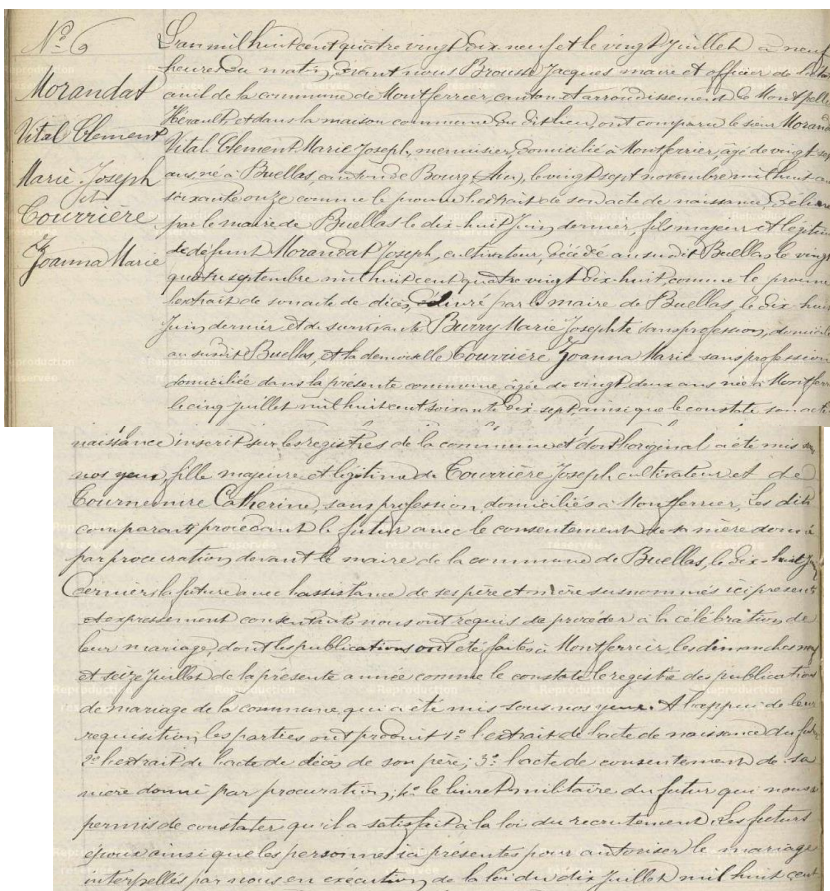 N° 6
Morandat
Vital Clement
Marie Joseph
et
Courrière
Joanna Marie
L'an mil huit cent quatre vingt dix neuf et le vingt Juillet à neuf
heures du matin, devant nous Brousse Jacques maire et officier de l'état
civil de la commune de Montferrier, canton et arrondissement de Montpellier
Hérault, et dans la maison commune du dit lieu, ont comparu le sieur Morandat
Vital Clement Marie Joseph, menuisier, domicilié à Montferrier, âgé de vingt sept
ans né à Buellas, canton de Bourg (Ain), le vingt sept novembre mil huit cent
soixante onze comme le prouve l'extrait de son acte de naissance délivré
par le maire de Buellas le dix-huit Juin dernier, fils majeur et légitime
de défunt Morandat Joseph, cultivateur, décédé au susdit Buellas, le vingt
quatre septembre mil huit cent quatre vingt dix huit, comme le prouve
l'extrait de son acte de décès, délivré par le maire de Buellas, le dix-huit
Juin dernier et de survivante Burry Marie Josephte sans profession, domiciliée
au susdit Buellas, et la demoiselle Courrière Joanna Marie sans profession
domiciliée dans la présente commune, âgée de vingt deux ans née à Montferrier
le cinq juillet mil huit cent soixante dix sept ainsi que le constate son acte
naissance inscrit sur les registres de la commune et dont l'original a été mis sous
nos yeux, fille majeure et légitime de Courrière Joseph cultivateur et de
Catherine, sans profession, domiciliés à Montferrier, Les dits
comparants procédant le futur avec le consentement de sa mère donné
par procuration devant le maire de la commune de Buellas, le dix-huit Juin
dernier, la future avec l'assistance de ses père et mère susnommés ici présents
et expressement consentants nous ont requis de procéder à la célébration de
leur mariage, dont les publications ont été faites à Montferrier, les dimanches neuf
et seize Juillet de la présente année comme le constate le registre des publications
de mariage de la commune, qui a été mis sous nos yeux. A l'appui de leur
requisition, les parties ont produit 1° l'extrait de l'acte de naissance du futur
2° l'extrait de l'acte de décès de son père; 3° l'acte de consentement de sa
mère donné par procuration; 4° le livret militaire du futur qui nous a
permis de constater qu'il a satisfait à la loi du recrutement. Les futurs
époux ainsi que les personnes ici présentes pour autoriser le mariage
interpellés par nous en exécution de la loi du dix Juillet mil huit cent